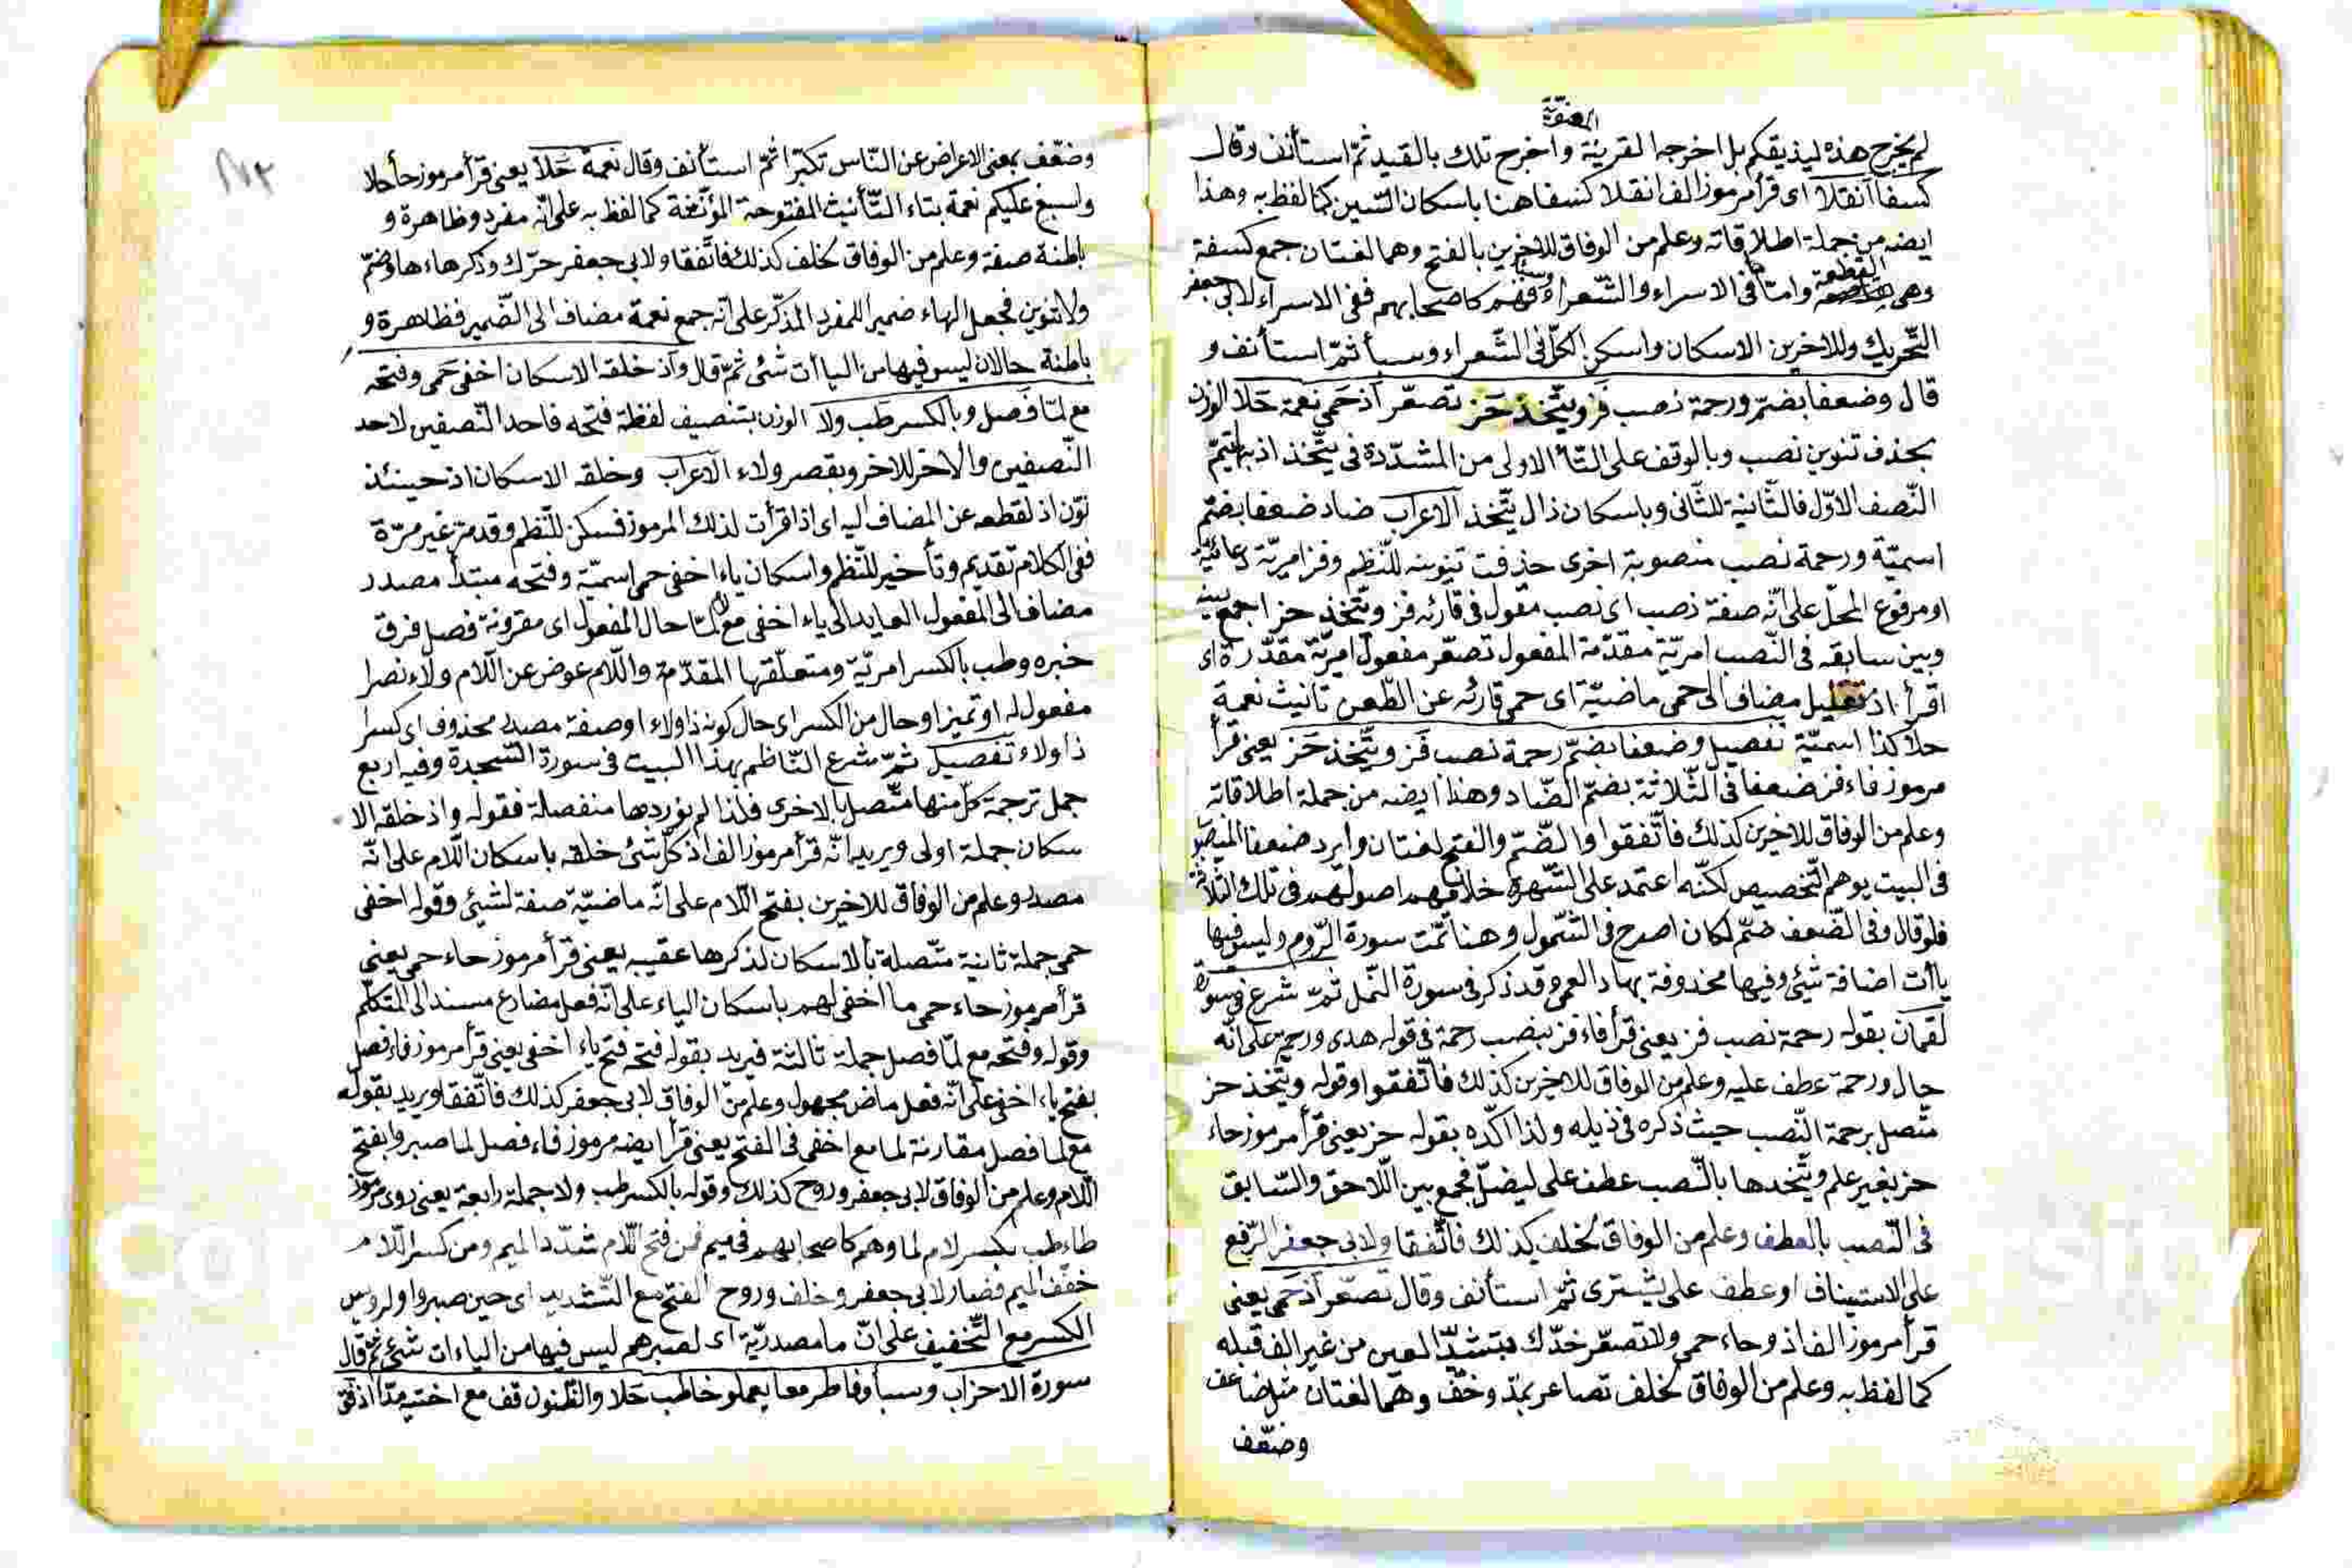 المعنوية
لم يخرج هذه ليذيقكم بل اخرجها لقرينة واخرج تلك بالقيد ثمّ استأنف وقال
كسفا انقلا اى قرأ مرموز الف انقلا كسفا هنا باسكان السّين كما لفظ به وهذا
ايضه من جملة اطلاقاته وعلم من الوفاق للاخرين بالفتح وهما لغتان جمع كسفة
وهى القطعة وامّا فى الاسراء والشّعراء وسبأ فهم كاصحابهم ففى الاسراء لابى جعفر
التّحريك وللاخرين الاسكان واسكن الكلّ فى الشّعراء وسبأ ثمّ استأنف و
قال وضعفا بضمّ ورحمة نصب فز ويتّخذ حز تصعّر اذ حمى نعمة حلا الوزن
بحذف تنوين نصب وبالوقف على التّاء الاولى من المشدّدة فى يتّخذ اذ بها يتمّ
النّصف الاوّل فالثّانية للثّانى وباسكان ذال يتّخذ الاعراب ضاد ضعفا بضمّ
اسميّة ورحمة نصب منصوبة اخرى حذفت تنوينه للنّظم وفز امريّة دعائيّة
او مرفوع المحلّ على انّه صفة نصب اى نصب مقول فى قارئه فز ويتّخذ حز اجمع بينه
وبين سابقه فى النّصب امريّة مقدّمة المفعول تصعّر مفعول امريّة مقدّرة اى
اقرأ اذ تعليل مضاف الى حمى ماضيّة اى حمى قارئه عن الطّعن تأنيث نعمة
حلا كذا اسميّة تفصيل وضعفا بضمّ رحمة نصب فز ويتّخذ حز يعنى قرأ
مرموز فاء فز ضعفا فى الثّلاثة بضمّ الضّاد وهذا ايضه من جملة اطلاقاته
وعلم من الوفاق للاخرين كذلك فاتّفقوا والضّمّ والفتح لغتان وايرد ضعفا المنصوب
فى البيت يوهم التّخصيص لكنّه اعتمد على الشّهرة خلافهم اصولهم فى تلك الثّلاثة
فلو قال وفى الضّعف ضمّ لكان اصرح فى الشّمول وهنا تمّت سورة الرّوم وليس فيها
ياآت اضافة شئ وفيها محذوفة بهاد العمى وقد ذكر فى سورة النّمل ثمّ شرع فى سورة
لقمان بقوله رحمة نصب فز يعنى قرأ فاء فز بنصب رحمة فى قوله هدى ورحمة على انّه
حال ورحمة عطف عليه وعلم من الوفاق للاخرين كذلك فاتّفقوا وقوله ويتّخذ حز
متّصل برحمة النّصب حيث ذكره فى ذيله ولذا اكّده بقوله حز يعنى قرأ مرموز حاء
حز بغير علم ويتّخذها بالنّصب عطف على ليضلّ فجمع بين اللّاحق والسّابق
فى النّصب بالعطف وعلم من الوفاق لخلف كذلك فاتّفقا ولابى جعفر الرّفع
على الاستيناف او عطف على يشترى ثمّ استأنف وقال تصعّر اذ حمى يعنى
قرأ مرموز الف اذ وحاء حمى ولا تصعّر خدّك بتشديد العين من غير الف قبله
كما لفظ به وعلم من الوفاق لخلف تصاعر بمدّ وخفّ وهما لغتان مثل ضاعف
وضعّف
وضعّف بمعنى الاعراض عن النّاس تكبّرا ثمّ استأنف وقال نعمة حلا يعنى قرأ مرموز حاء حلا
واسبغ عليكم نعمة بتاء التّأنيث المفتوحة المؤنّثة كما لفظ به على انّه مفرد وظاهرة و
باطنة صفة وعلم من الوفاق لخلف كذلك فاتّفقا ولابى جعفر حرّك وذكرهاءها وضمّ
ولا تنوين فجعل الهاء ضميرا للمفرد المذكّر على انّه جمع نعمة مضاف الى الضّمير فظاهرة و
باطنة حالان ليس فيها من الياآت شئ ثمّ قال واذ خلقه الاسكان اخفى حمى وفتحه
مع لمّا فصل وبالكسر طب ولا الوزن بتنصيف لفظة فتحه فاحد النّصفين لاحد
النّصفين والاخر للاخر وبقصر ولاء الاعراب وخلقه الاسكان اذ حينئذ
نوّن اذ لقطعه عن المضاف اليه اى اذا قرأت لذلك المرموز فسكن للنّظم وقد مرّ غير مرّة
ففى الكلام تقديم وتأخير للنّظم واسكان ياء اخفى حمى اسميّة وفتحه مبتدأ مصدر
مضاف الى المفعول العايد الى ياء اخفى مع لمّا حال المفعول اى مقرونة فصل فرق
خبره وطب بالكسر امريّة ومتعلّقها المقدّمة واللّام عوض عن اللّام ولاء نصرا
مفعول له او تميز او حال من الكسر اى حال كونه ذا ولاء او صفة مصدر محذوف اى كسرا
ذا ولاء تفصيل ثمّ شرع النّاظم بهذا البيت فى سورة السّجدة وفيه اربع
جمل ترجمة كلّ منها متّصل بالاخرى فلذا لم نوردها منفصلة فقوله واذ خلقه الا
سكان جملة اولى ويريد انّه قرأ مرموز الف اذ كلّ شئ خلقه باسكان اللّام على انّه
مصدر وعلم من الوفاق للاخرين بفتح اللّام على انّه ماضيّة صفة لشئ وقوله اخفى
حمى جملة ثانية متّصلة بالاسكان لذكرها عقيبه يعنى قرأ مرموز حاء حمى يعنى
قرأ مرموز حاء حمى ما اخفى لهم باسكان الياء على انّه فعل مضارع مسند الى المتكلّم
وقوله وفتحه مع لمّا فصل جملة ثالثة فيريد بقوله فتحه فتح ياء اخفى يعنى قرأ مرموز فاء فصل
بفتح ياء اخفى على انّه فعل ماض مجهول وعلم من الوفاق لابى جعفر كذلك فاتّفقا ويريد بقوله
مع لما فصل مقارنة لما مع اخفى فى الفتح يعنى قرأ ايضه مرموز فاء فصل لما صبروا بفتح
اللّام وعلم من الوفاق لابى جعفر وروح كذلك وقوله بالكسر طب ولا جملة رابعة يعنى روى مرموز
طاء طب بكسر لام لما وهم كاصحابهم فى ميم فمن فتح اللّام شدّد الميم ومن كسر اللّام
خفّف الميم فصار لابى جعفر وخلف وروح الفتح مع التّشديد اى حين صبروا ولرويس
الكسر مع التّخفيف على انّ ما مصدريّة اى لصبرهم ليس فيها من الياءات شئ ثمّ قال
سورة الاحزاب وسبأ وفاطر معا يعملو خاطب حلا والظّنون قف مع اختيه مدّا اذ فق